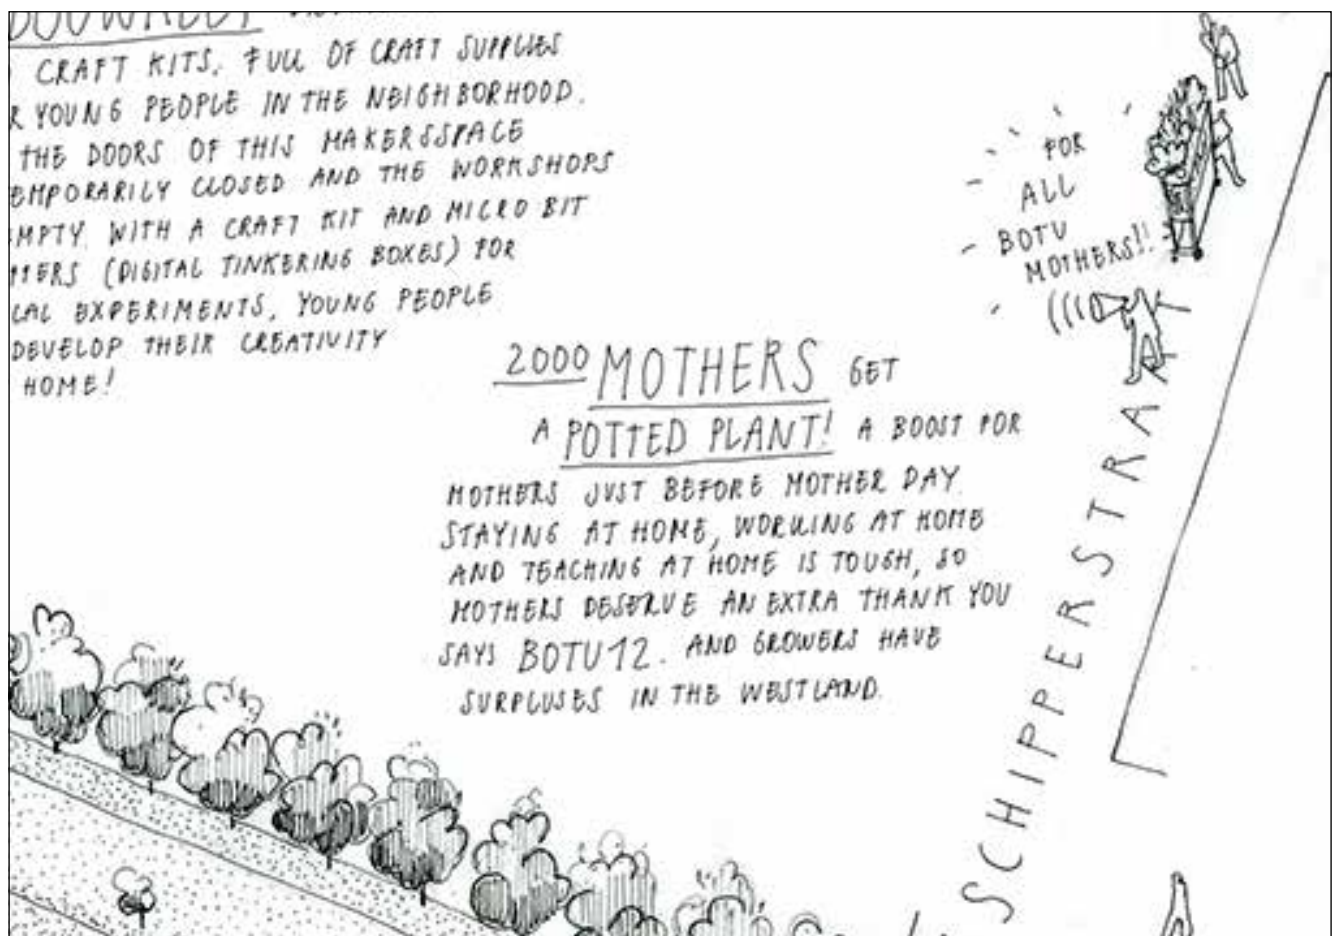 CRAFT KITS, FULL OF CRAFT SUPPLIES
YOUNG PEOPLE IN THE NEIGHBORHOOD.
THE DOORS OF THIS MAKERSSPACE
EMPORARILY CLOSED AND THE WORKSHOPS
MPTY. WITH A CRAFT KIT AND MICRO BIT
(DIGITAL TINKERING BOXES) FOR
CAL EXPERIMENTS, YOUNG PEOPLE
DEVELOP THEIR CREATIVITY
HOME!
2000 MOTHERS GET
A POTTED PLANT! A BOOST FOR
MOTHERS JUST BEFORE MOTHER DAY.
STAYING AT HOME, WORKING AT HOME
AND TEACHING AT HOME IS TOUGH, SO
MOTHERS DESERVE AN EXTRA THANK YOU
SAYS BOTU12. AND GROWERS HAVE
SURPLUSES IN THE WESTLAND.
FOR
ALL
BOTU
MOTHERS!!
SCHIPPERSTRAAT